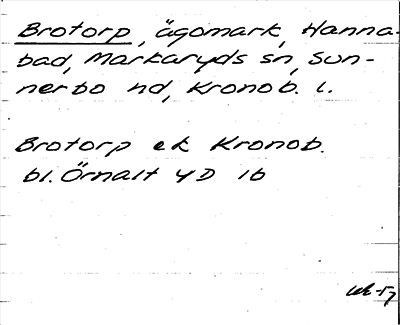 Brotorp, ägomark, Hanna-
bad, Markaryds sn, Sun-
nerbo hd, Kronob. l.
Brotorp ek Kronob.
bl. Örnalt 4D 1b